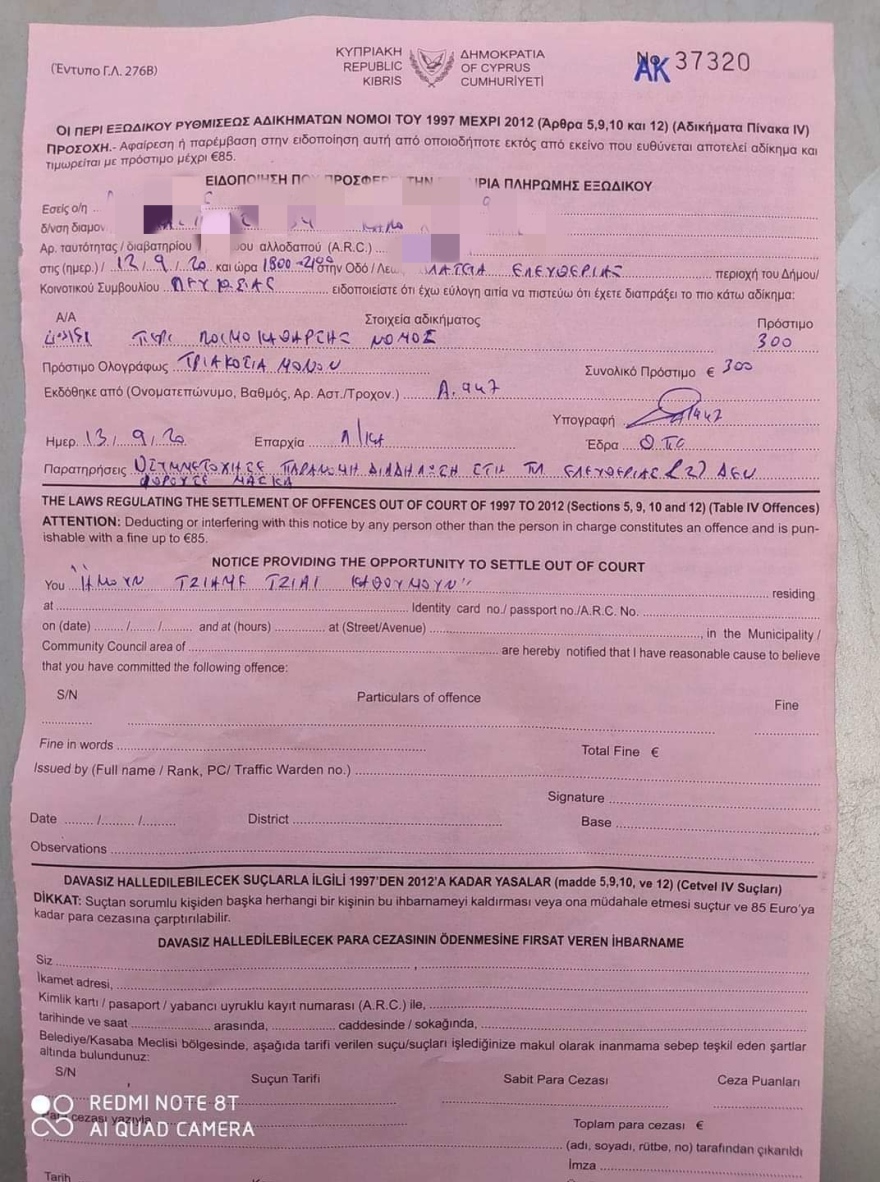 (Έντυπο Γ.Λ. 276Β)
ΚΥΠΡΙΑΚΗ ΔΗΜΟΚΡΑΤΙΑ
REPUBLIC OF CYPRUS
KIBRIS CUMHURİYETİ
№ 37320
ΑΚ
ΟΙ ΠΕΡΙ ΕΞΩΔΙΚΟΥ ΡΥΘΜΙΣΕΩΣ ΑΔΙΚΗΜΑΤΩΝ ΝΟΜΟΙ ΤΟΥ 1997 ΜΕΧΡΙ 2012 (Άρθρα 5,9,10 και 12) (Αδικήματα Πίνακα IV)
ΠΡΟΣΟΧΗ.- Αφαίρεση ή παρέμβαση στην ειδοποίηση αυτή από οποιοδήποτε εκτός από εκείνο που ευθύνεται αποτελεί αδίκημα και
τιμωρείται με πρόστιμο μέχρι €85.
ΕΙΔΟΠΟΙΗΣΗ ΠΛΗΡΩΜΗΣ ΕΞΩΔΙΚΟΥ
Εσείς ο/η
δ/νση διαμον
Αρ. ταυτότητας / διαβατηρίου αλλοδαπού (A.R.C.)
στις (ημερ.) / 13 / 9 / 20 και ώρα 1800 - στην Οδό / Λεω. ΠΛΑΤΕΙΑ ΕΛΕΥΘΕΡΙΑΣ περιοχή του Δήμου/
Κοινοτικού Συμβουλίου ΛΕΥΚΩΣΙΑΣ ειδοποιείστε ότι έχω εύλογη αιτία να πιστεύω ότι έχετε διαπράξει το πιο κάτω αδίκημα:
Α/Α Στοιχεία αδικήματος Πρόστιμο
ΠΕΡΙ ΛΟΙΜΟΚΑΘΑΡΣΗΣ ΝΟΜΟΣ 300
Πρόστιμο Ολογράφως ΤΡΙΑΚΟΣΙΑ ΜΟΝΟΝ Συνολικό Πρόστιμο € 300
Εκδόθηκε από (Ονοματεπώνυμο, Βαθμός, Αρ. Αστ./Τροχον.) Α. 447
Υπογραφή
Ημερ. 13 / 9 / 20 Επαρχία Λ/ΚΑ Έδρα
Παρατηρήσεις ΣΥΜΜΕΤΟΧΗ ΣΕ ΠΑΡΑΝΟΜΗ ΔΙΑΔΗΛΩΣΗ ΣΤΗ ΠΛ ΕΛΕΥΘΕΡΙΑΣ 2) ΔΕΝ
ΦΟΡΟΥΣΕ ΜΑΣΚΑ
THE LAWS REGULATING THE SETTLEMENT OF OFFENCES OUT OF COURT OF 1997 TO 2012 (Sections 5, 9, 10 and 12) (Table IV Offences)
ATTENTION: Deducting or interfering with this notice by any person other than the person in charge constitutes an offence and is pun-
ishable with a fine up to €85.
NOTICE PROVIDING THE OPPORTUNITY TO SETTLE OUT OF COURT
You "ΗΜΟΥΝ ΤΖΙΑΜΕ ΤΖΙΑΙ ΚΑΘΟΥΜΟΥΝ" residing
at Identity card no./ passport no./A.R.C. No.
on (date) / / and at (hours) at (Street/Avenue) , in the Municipality /
Community Council area of are hereby notified that I have reasonable cause to believe
that you have committed the following offence:
S/N Particulars of offence Fine
Fine in words Total Fine €
Issued by (Full name / Rank, PC/ Traffic Warden no.)
Signature
Date / / District Base
Observations
DAVASIZ HALLEDİLEBİLECEK SUÇLARLA İLGİLİ 1997'DEN 2012'A KADAR YASALAR (madde 5,9,10, ve 12) (Cetvel IV Suçları)
DİKKAT: Suçtan sorumlu kişiden başka herhangi bir kişinin bu ihbarnameyi kaldırması veya ona müdahale etmesi suçtur ve 85 Euro'ya
kadar para cezasına çarptırılabilir.
DAVASIZ HALLEDİLEBİLECEK PARA CEZASININ ÖDENMESİNE FIRSAT VEREN İHBARNAME
Siz
İkamet adresi,
Kimlik kartı / pasaport / yabancı uyruklu kayıt numarası (A.R.C.) ile,
tarihinde ve saat arasında, caddesinde / sokağında,
Belediye/Kasaba Meclisi bölgesinde, aşağıda tarifi verilen suçu/suçları işlediğinize makul olarak inanmama sebep teşkil eden şartlar
altında bulundunuz:
S/N Suçun Tarifi Sabit Para Cezası Ceza Puanları
Para cezası yazıyla Toplam para cezası €
(adı, soyadı, rütbe, no) tarafından çıkarıldı
İmza
Tarih
REDMI NOTE 8T
AI QUAD CAMERA